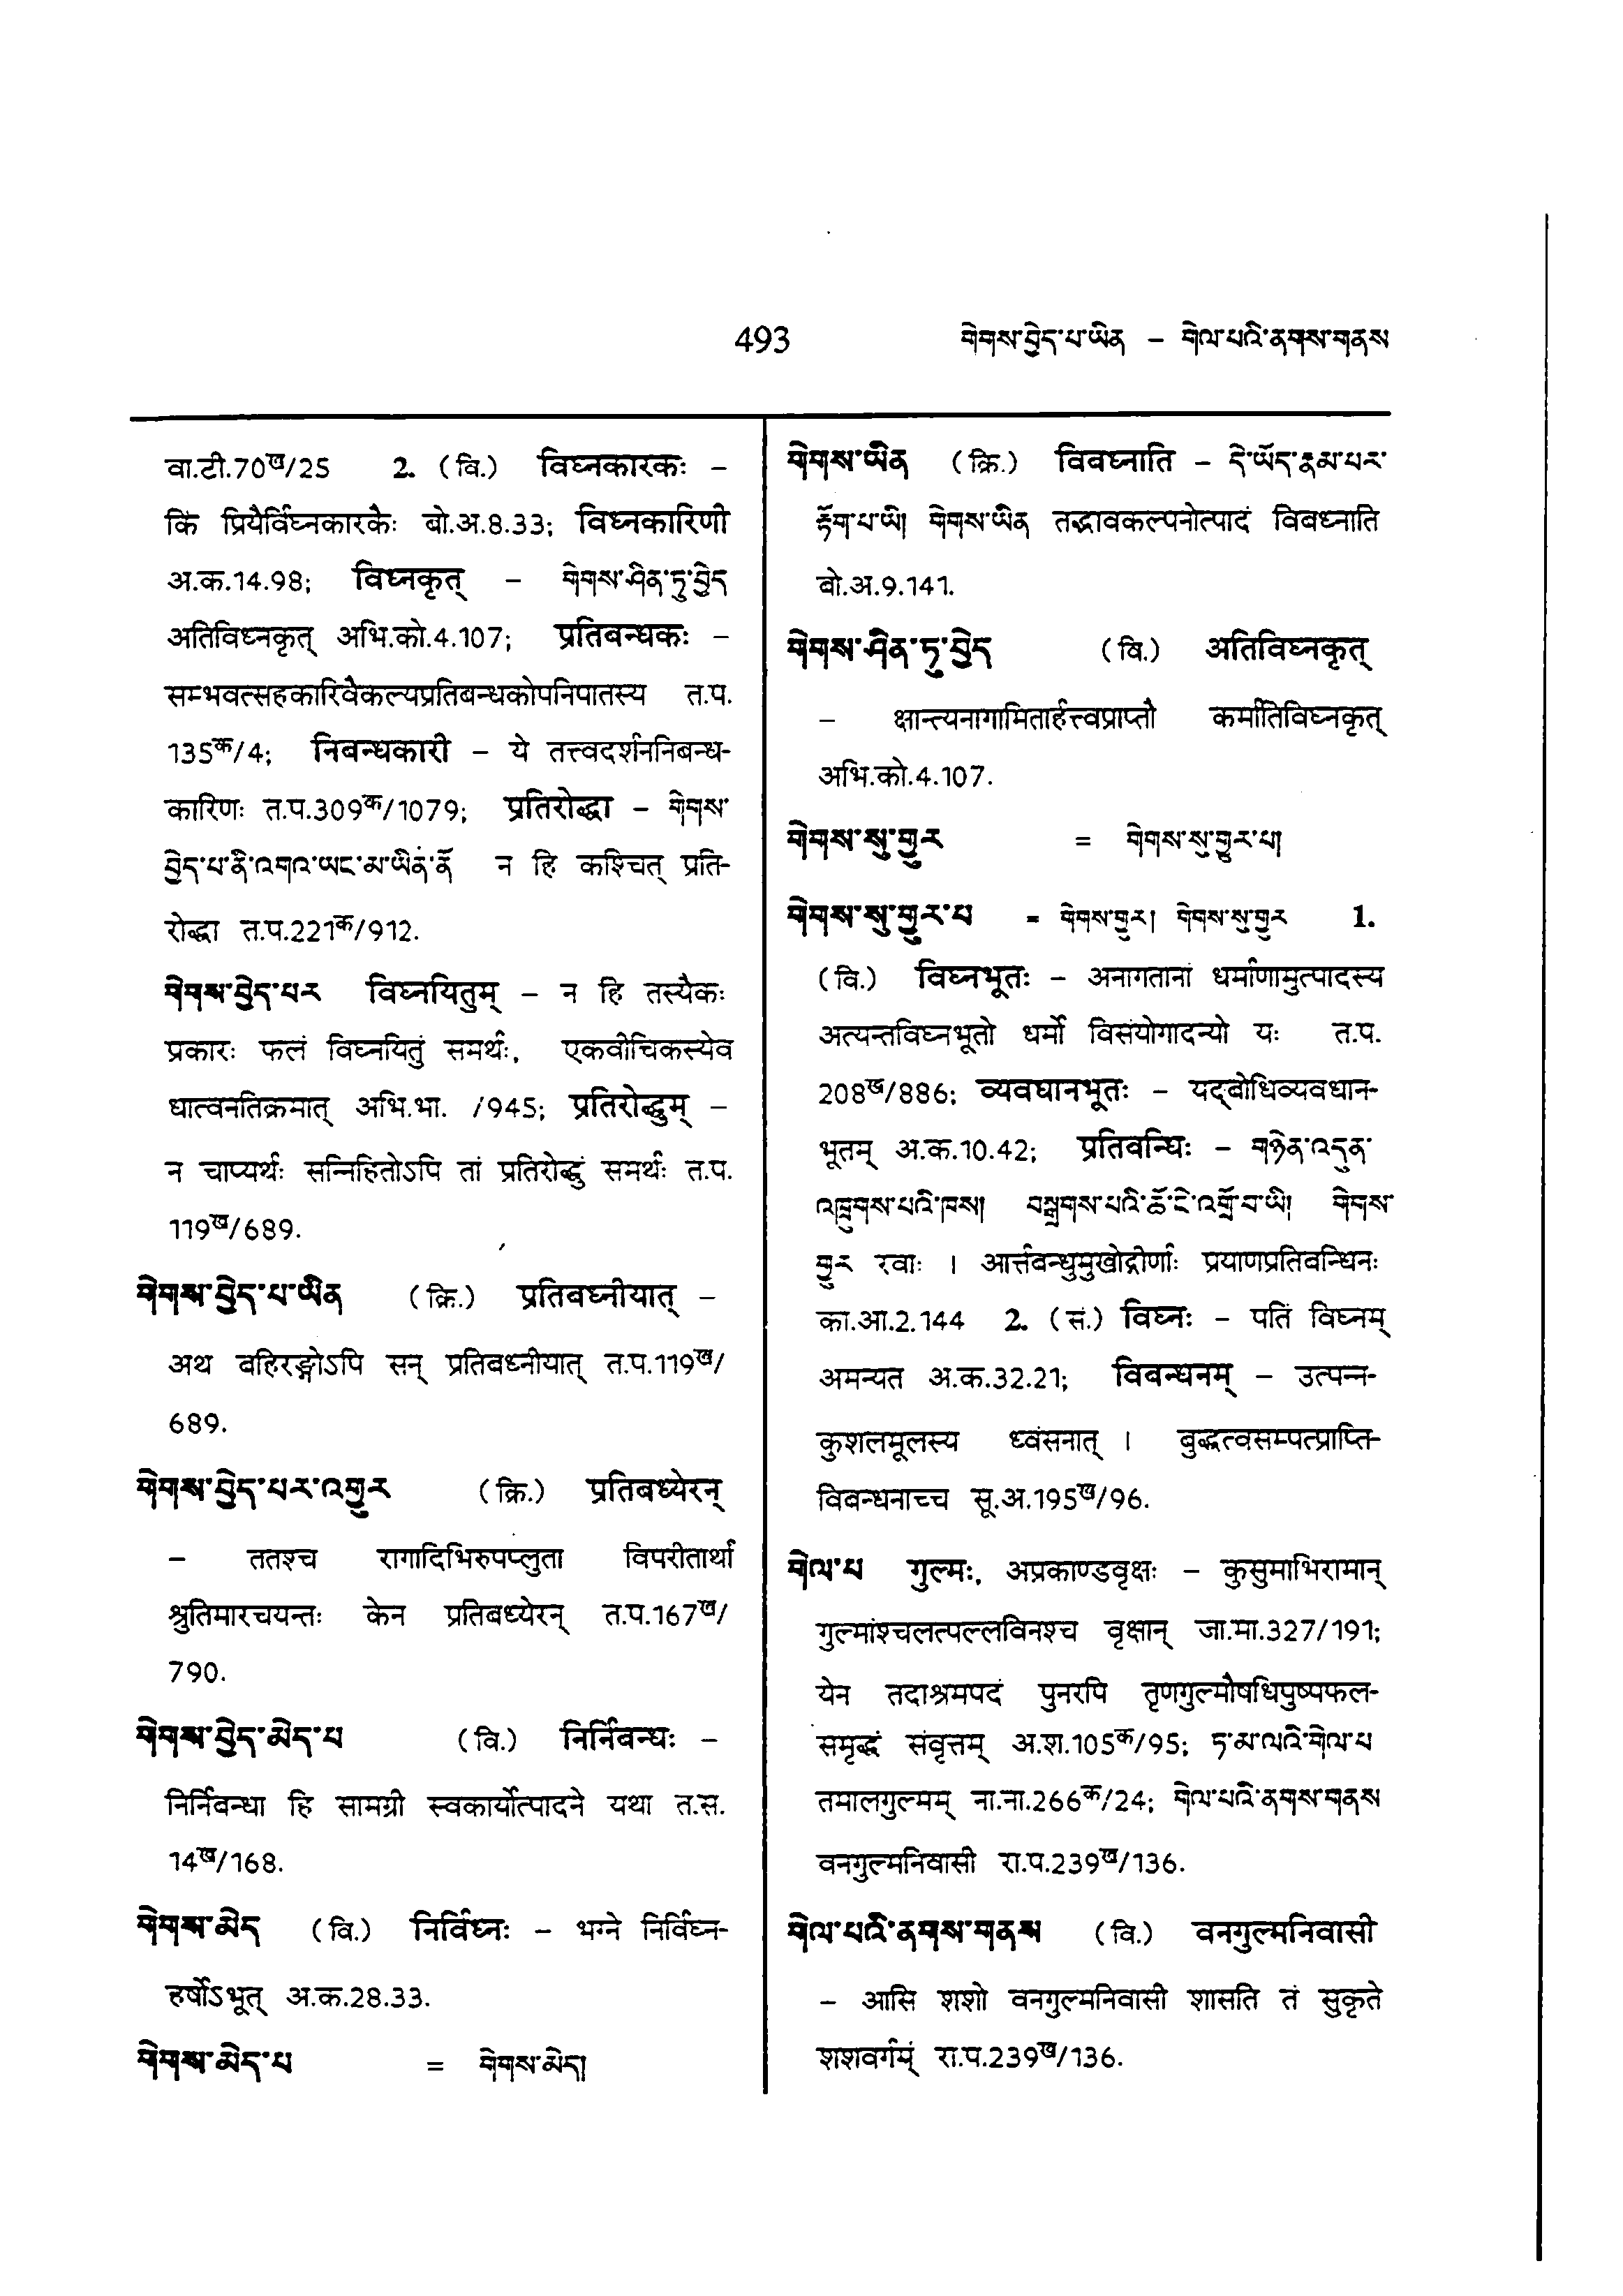 493 གེགས་བྱེད་པ་ཡིན – གེལ་པའི་ནགས་གནས
वा.टी.70ख/25 2. (वि.) विघ्नकारकः –
किं प्रियैर्विघ्नकारकैः बो.अ.8.33; विघ्नकारिणी
अ.क.14.98; विघ्नकृत् – གེགས་ཤིན་ཏུ་བྱེད
अतिविघ्नकृत् अभि.को.4.107; प्रतिबन्धकः –
सम्भवत्सहकारिवैकल्यप्रतिबन्धकोपनिपातस्य त.प.
135क/4; निबन्धकारी – ये तत्त्वदर्शननिबन्ध-
कारिणः त.प.309क/1079; प्रतिरोद्धा – གེགས་
བྱེད་པ་ནི་འགའ་ཡང་མ་ཡིན་ནོ न हि कश्चित् प्रति-
रोद्धा त.प.221क/912.
གེགས་བྱེད་པར विघ्नयितुम् – न हि तस्यैकः
प्रकारः फलं विघ्नयितुं समर्थः, एकवीचिकस्येव
धात्वनतिक्रमात् अभि.भा. /945; प्रतिरोद्धुम् –
न चाप्यर्थः सन्निहितोऽपि तां प्रतिरोद्धुं समर्थः त.प.
119ख/689.
གེགས་བྱེད་པ་ཡིན (क्रि.) प्रतिबध्नीयात् –
अथ बहिरङ्गोऽपि सन् प्रतिबध्नीयात् त.प.119ख/
689.
གེགས་བྱེད་པར་འགྱུར (क्रि.) प्रतिबध्येरन्
– ततश्च रागादिभिरुपप्लुता विपरीतार्थां
श्रुतिमारचयन्तः केन प्रतिबध्येरन् त.प.167ख/
790.
གེགས་བྱེད་མེད་པ (वि.) निर्निबन्धः –
निर्निबन्धा हि सामग्री स्वकार्योत्पादने यथा त.स.
14ख/168.
གེགས་མེད (वि.) निर्विघ्नः – भग्ने निर्विघ्न-
हर्षोऽभूत् अ.क.28.33.
གེགས་མེད་པ = གེགས་མེད།
གེགས་ཡིན (क्रि.) विबध्नाति – དེ་ཡོད་རྣམ་པར་
རྟོག་པ་ཡི། གེགས་ཡིན तद्भावकल्पनोत्पादं विबध्नाति
बो.अ.9.141.
གེགས་ཤིན་ཏུ་བྱེད (वि.) अतिविघ्नकृत्
– क्षान्त्यनागामितार्हत्त्वप्राप्तौ कर्मातिविघ्नकृत्
अभि.को.4.107.
གེགས་སུ་གྱུར = གེགས་སུ་གྱུར་པ།
གེགས་སུ་གྱུར་པ = གེགས་གྱུར། གེགས་སུ་གྱུར 1.
(वि.) विघ्नभूतः – अनागतानां धर्माणामुत्पादस्य
अत्यन्तविघ्नभूतो धर्मो विसंयोगादन्यो यः त.प.
208ख/886; व्यवधानभूतः – यद्बोधिव्यवधान-
भूतम् अ.क.10.42; प्रतिबन्धिः – གཉེན་འདུན་
འཁྲུགས་པའི་ཁས། བསྒྲགས་པའི་ཆོ་ངེ་འགྲོ་བ་ཡི། གེགས་
གྱུར रवाः । आर्त्तबन्धुमुखोद्गीर्णाः प्रयाणप्रतिबन्धिनः
का.आ.2.144 2. (सं.) विघ्नः – पतिं विघ्नम्
अमन्यत अ.क.32.21; विबन्धनम् – उत्पन्न-
कुशलमूलस्य ध्वंसनात् । बुद्धत्वसम्पत्प्राप्ति-
विबन्धनाच्च सू.अ.195ख/96.
གེལ་པ गुल्मः, अप्रकाण्डवृक्षः – कुसुमाभिरामान्
गुल्मांश्चलत्पल्लविनश्च वृक्षान् जा.मा.327/191;
येन तदाश्रमपदं पुनरपि तृणगुल्मौषधिपुष्पफल-
समृद्धं संवृत्तम् अ.श.105क/95; ཏ་མ་ལའི་གེལ་པ
तमालगुल्मम् ना.ना.266क/24; གེལ་པའི་ནགས་གནས
वनगुल्मनिवासी रा.प.239ख/136.
གེལ་པའི་ནགས་གནས (वि.) वनगुल्मनिवासी
– आसि शशो वनगुल्मनिवासी शासति तं सुकृते
शशवर्गम् रा.प.239ख/136.